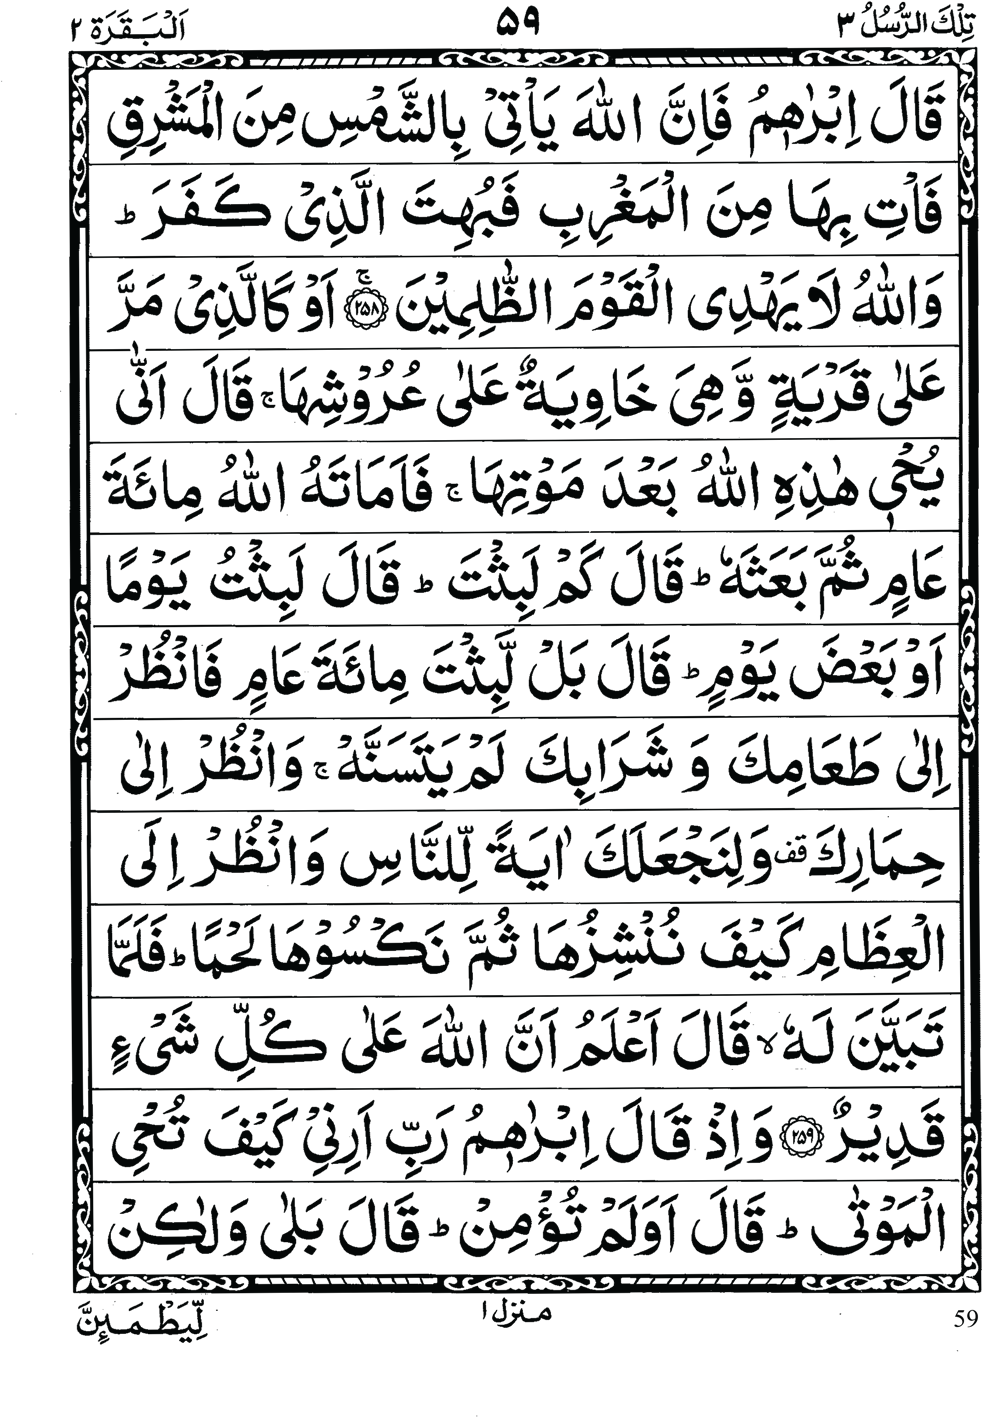 تِلْكَ الرُّسُلُ ٣
٥٩
اَلْبَقَرَة ٢
قَالَ اِبْرٰهٖمُ فَاِنَّ اللّٰهَ يَاْتِيْ بِالشَّمْسِ مِنَ الْمَشْرِقِ
فَاْتِ بِهَا مِنَ الْمَغْرِبِ فَبُهِتَ الَّذِيْ كَفَرَ ؕ
وَاللّٰهُ لَا يَهْدِى الْقَوْمَ الظّٰلِمِيْنَ ۚ ﴿٢٥٨﴾ اَوْ كَالَّذِيْ مَرَّ
عَلٰى قَرْيَةٍ وَّهِيَ خَاوِيَةٌ عَلٰى عُرُوْشِهَا ۚ قَالَ اَنّٰى
يُحْيٖ هٰذِهِ اللّٰهُ بَعْدَ مَوْتِهَا ۚ فَاَمَاتَهُ اللّٰهُ مِائَةَ
عَامٍ ثُمَّ بَعَثَهٗ ؕ قَالَ كَمْ لَبِثْتَ ؕ قَالَ لَبِثْتُ يَوْمًا
اَوْ بَعْضَ يَوْمٍ ؕ قَالَ بَلْ لَّبِثْتَ مِائَةَ عَامٍ فَانْظُرْ
اِلٰى طَعَامِكَ وَ شَرَابِكَ لَمْ يَتَسَنَّهْ ۚ وَانْظُرْ اِلٰى
حِمَارِكَ قف وَلِنَجْعَلَكَ اٰيَةً لِّلنَّاسِ وَانْظُرْ اِلَى
الْعِظَامِ كَيْفَ نُنْشِزُهَا ثُمَّ نَكْسُوْهَا لَحْمًا ؕ فَلَمَّا
تَبَيَّنَ لَهٗ ۙ قَالَ اَعْلَمُ اَنَّ اللّٰهَ عَلٰى كُلِّ شَيْءٍ
قَدِيْرٌ ﴿٢٥٩﴾ وَاِذْ قَالَ اِبْرٰهٖمُ رَبِّ اَرِنِيْ كَيْفَ تُحْيِ
الْمَوْتٰى ؕ قَالَ اَوَلَمْ تُؤْمِنْ ؕ قَالَ بَلٰى وَلٰكِنْ
لِّيَطْمَئِنَّ
منزل ١
59